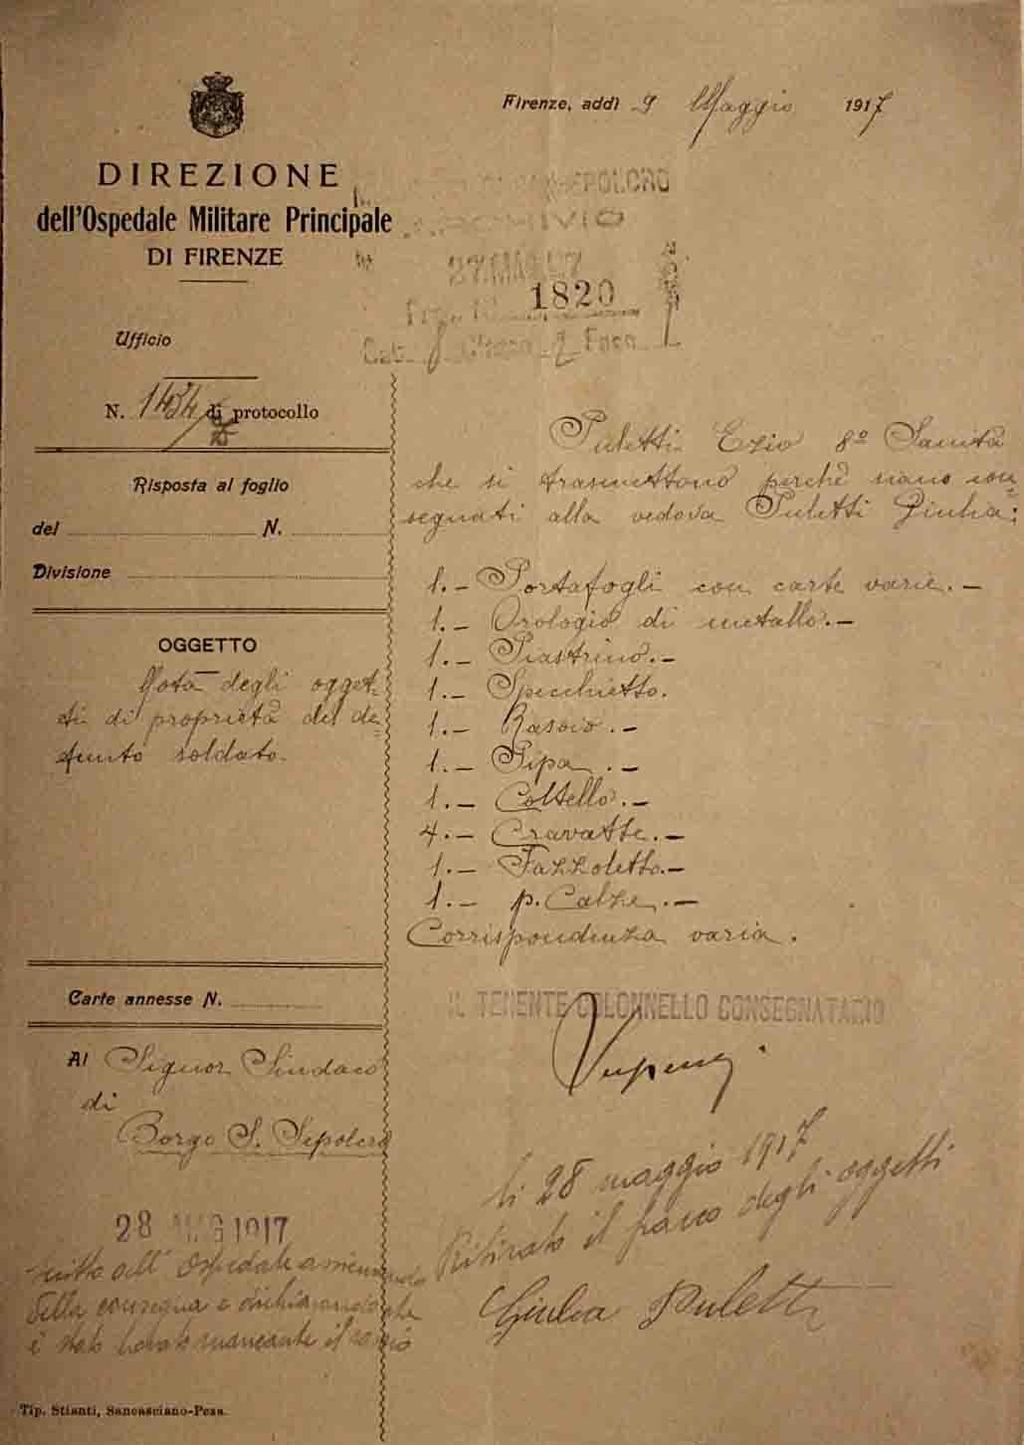 Firenze, addì 9 Maggio 1917
DIREZIONE
dell'Ospedale Militare Principale
DI FIRENZE
ARCHIVIO
1820
Ufficio
N. di protocollo
Risposta al foglio
del N.
Divisione
OGGETTO
Nota degli ogget-
ti di proprietà del de=
funto soldato.
Puletti Ezio 8º Sanità
che si trasmettono perchè siano con=
segnati alla vedova Puletti Giulia:
1.- Portafogli con carte varie.-
1.- Orologio di metallo.-
1.- Piastrino.-
1.- Specchietto.
1.- Rasoio.-
1.- Pipa.-
1.- Coltello.-
4.- Cravatte.-
1.- Fazzoletto.-
1.- p. Calze.-
Corrispondenza varia.
Carte annesse N.
Al Signor Sindaco
di
Borgo S. Sepolcro
IL TENENTE COLONNELLO CONSEGNATARIO
li 28 maggio 1917
Ritirato il pacco degli oggetti
Giulia Puletti
28 1917
all' Ospedale
della consegna e dichiarando che
è stato trovato mancante il rasoio
Tip. Stianti, Sancasciano-Pesa.